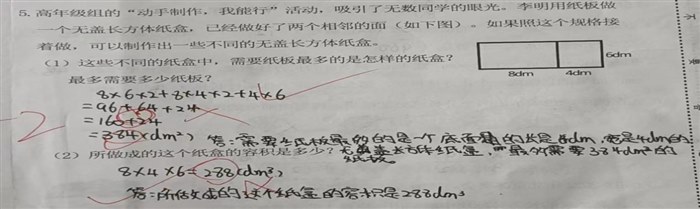 5. 高年级组的“动手制作，我能行”活动，吸引了无数同学的眼光。李明用纸板做
一个无盖长方体纸盒，已经做好了两个相邻的面（如下图）。如果照这个规格接
着做，可以制作出一些不同的无盖长方体纸盒。
（1）这些不同的纸盒中，需要纸板最多的是怎样的纸盒？
最多需要多少纸板？
6dm
8dm 4dm
8×6×2+8×4×2+4×6
=96+64+24
=160+24
=384(dm²) 答：需要纸板最多的是一个底面的长是8dm，宽是4dm的
-2
（2）所做成的这个纸盒的容积是多少？无盖长方体纸盒，最多需要384dm²的
纸板
8×4×6=288(dm³)
答：所做成的这个纸盒的容积是288dm³